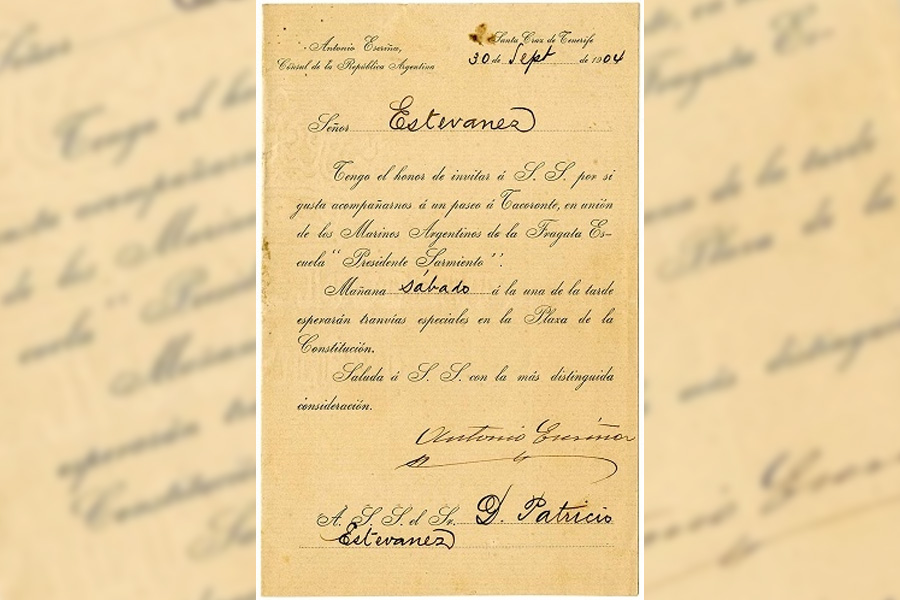 Antonio Escriña,
Cónsul de la República Argentina
Santa Cruz de Tenerife
30 de Sept de 1904
Señor Estevanez
Tengo el honor de invitar á S. S. por si
gusta acompañarnos á un paseo á Tacoronte, en unión
de los Marinos Argentinos de la Fragata Es-
cuela “Presidente Sarmiento”.
Mañana sábado á la una de la tarde
esperarán tranvías especiales en la Plaza de la
Constitución.
Saluda á S. S. con la más distinguida
consideración.
Antonio Escriña
A. S. S. el Sr. D. Patricio
Estevanez